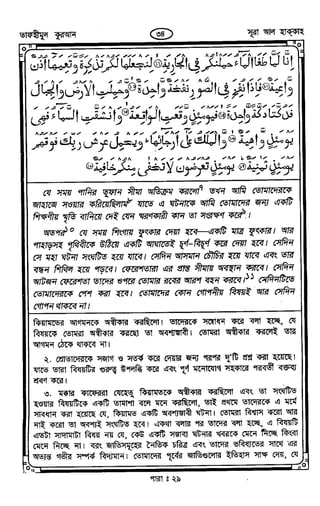 তাফহীমুল কুরআন ৩৪ সূরা আল হাক্কাহ
إِنَّا لَمَّا طَغَا الْمَاءُ حَمَلْنٰكُمْ فِي الْجَارِيَةِ ⑪ لِنَجْعَلَهَا لَكُمْ تَذْكِرَةً وَّتَعِيَهَا أُذُنٌ
وَّاعِيَةٌ ⑫ فَإِذَا نُفِخَ فِي الصُّوْرِ نَفْخَةٌ وَّاحِدَةٌ ⑬ وَّحُمِلَتِ الْأَرْضُ وَالْجِبَالُ
فَدُكَّتَا دَكَّةً وَّاحِدَةً ⑭ فَيَوْمَئِذٍ وَّقَعَتِ الْوَاقِعَةُ ⑮ وَانْشَقَّتِ السَّمَاءُ فَهِيَ
يَوْمَئِذٍ وَّاهِيَةٌ ⑯ وَّالْمَلَكُ عَلٰى أَرْجَائِهَا ۚ وَيَحْمِلُ عَرْشَ رَبِّكَ فَوْقَهُمْ
يَوْمَئِذٍ ثَمٰنِيَةٌ ⑰ يَوْمَئِذٍ تُعْرَضُوْنَ لَا تَخْفٰى مِنْكُمْ خَافِيَةٌ ⑱
যে সময় পানির তুফান সীমা অতিক্রম করলো৭ তখন আমি তোমাদেরকে
জাহাজে সওয়ার করিয়েছিলাম৮ যাতে এ ঘটনাকে আমি তোমাদের জন্য একটি
শিক্ষণীয় স্মৃতি বানিয়ে দেই যেন স্মরণকারী কান তা সংরক্ষণ করে৯।
অতপর১০ যে সময় শিংগায় ফুৎকার দেয়া হবে—একটি মাত্র ফুৎকার। আর
পাহাড়সহ পৃথিবীকে উঠিয়ে একটি আঘাতেই চূর্ণ-বিচূর্ণ করে দেয়া হবে। সেদিন
সে মহা ঘটনা সংঘটিত হয়ে যাবে। সেদিন আসমান চৌচির হয়ে যাবে এবং তার
বন্ধন শিথিল হয়ে পড়বে। ফেরেশতারা এর প্রান্ত সীমায় অবস্থান করবে। সেদিন
আটজন ফেরেশতা তাদের ওপরে তোমার রবের আরশ বহন করবে।১১ সেদিনটিতে
তোমাদেরকে পেশ করা হবে। তোমাদের কোন গোপনীয় বিষয়ই আর সেদিন
গোপন থাকবে না।
কিয়ামতের আগমনকে অস্বীকার করছিলো। তাদেরকে সম্বোধন করে বলা হচ্ছে, যে
বিষয়কে তোমরা অস্বীকার করছো তা অবশ্যম্ভাবী। তোমরা অস্বীকার করলেই তার
আগমন ঠেকে থাকবে না।
২. শ্রোতাদেরকে সজাগ ও সতর্ক করে দেয়ার জন্য পরপর দু'টি প্রশ্ন করা হয়েছে।
যাতে তারা বিষয়টির গুরুত্ব উপলব্ধি করে এবং পূর্ণ মনোযোগ সহকারে পরবর্তী বক্তব্য
শ্রবণ করে।
৩. মক্কার কাফেররা যেহেতু কিয়ামতকে অস্বীকার করছিলো এবং তা সংঘটিত
হওয়ার বিষয়টিকে একটি তামাশা বলে মনে করছিলো, তাই প্রথমে তাদেরকে এ মর্মে
সাবধান করা হয়েছে যে, কিয়ামত একটি অবশ্যম্ভাবী ঘটনা। তোমরা বিশ্বাস করো আর
নাই করো তা অবশ্যই সংঘটিত হবে। একথা বলার পর তাদের বলা হচ্ছে, এ বিষয়টি
এতটা সাদামাটা বিষয় নয় যে, কেউ একটি সম্ভাব্য ঘটনার খবরকে মেনে নিচ্ছে কিংবা
মেনে নিচ্ছে না। বরং জাতিসমূহের নৈতিক চরিত্র এবং তাদের ভবিষ্যতের সাথে এর
অত্যন্ত গভীর সম্পর্ক বিদ্যমান। তোমাদের পূর্বের জাতিগুলোর ইতিহাস সাক্ষ দেয়, যে
পারা : ২৯